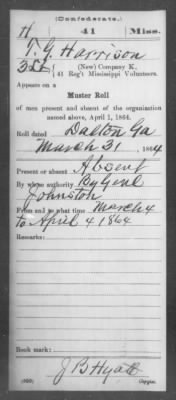 (Confederate.)
H 41 Miss.
T. G. Harrison
(New) Company K,
41 Reg't Mississippi Volunteers.
Appears on a
Muster Roll
of men present and absent of the organization
named above, April 1, 1864.
Roll dated Dalton Ga
March 31, 1864
Present or absent Absent
By whose authority By Genl
Johnston
From and to what time March 4
to April 4 1864
Remarks:
Book mark:
J B Hyatt
Copyist.